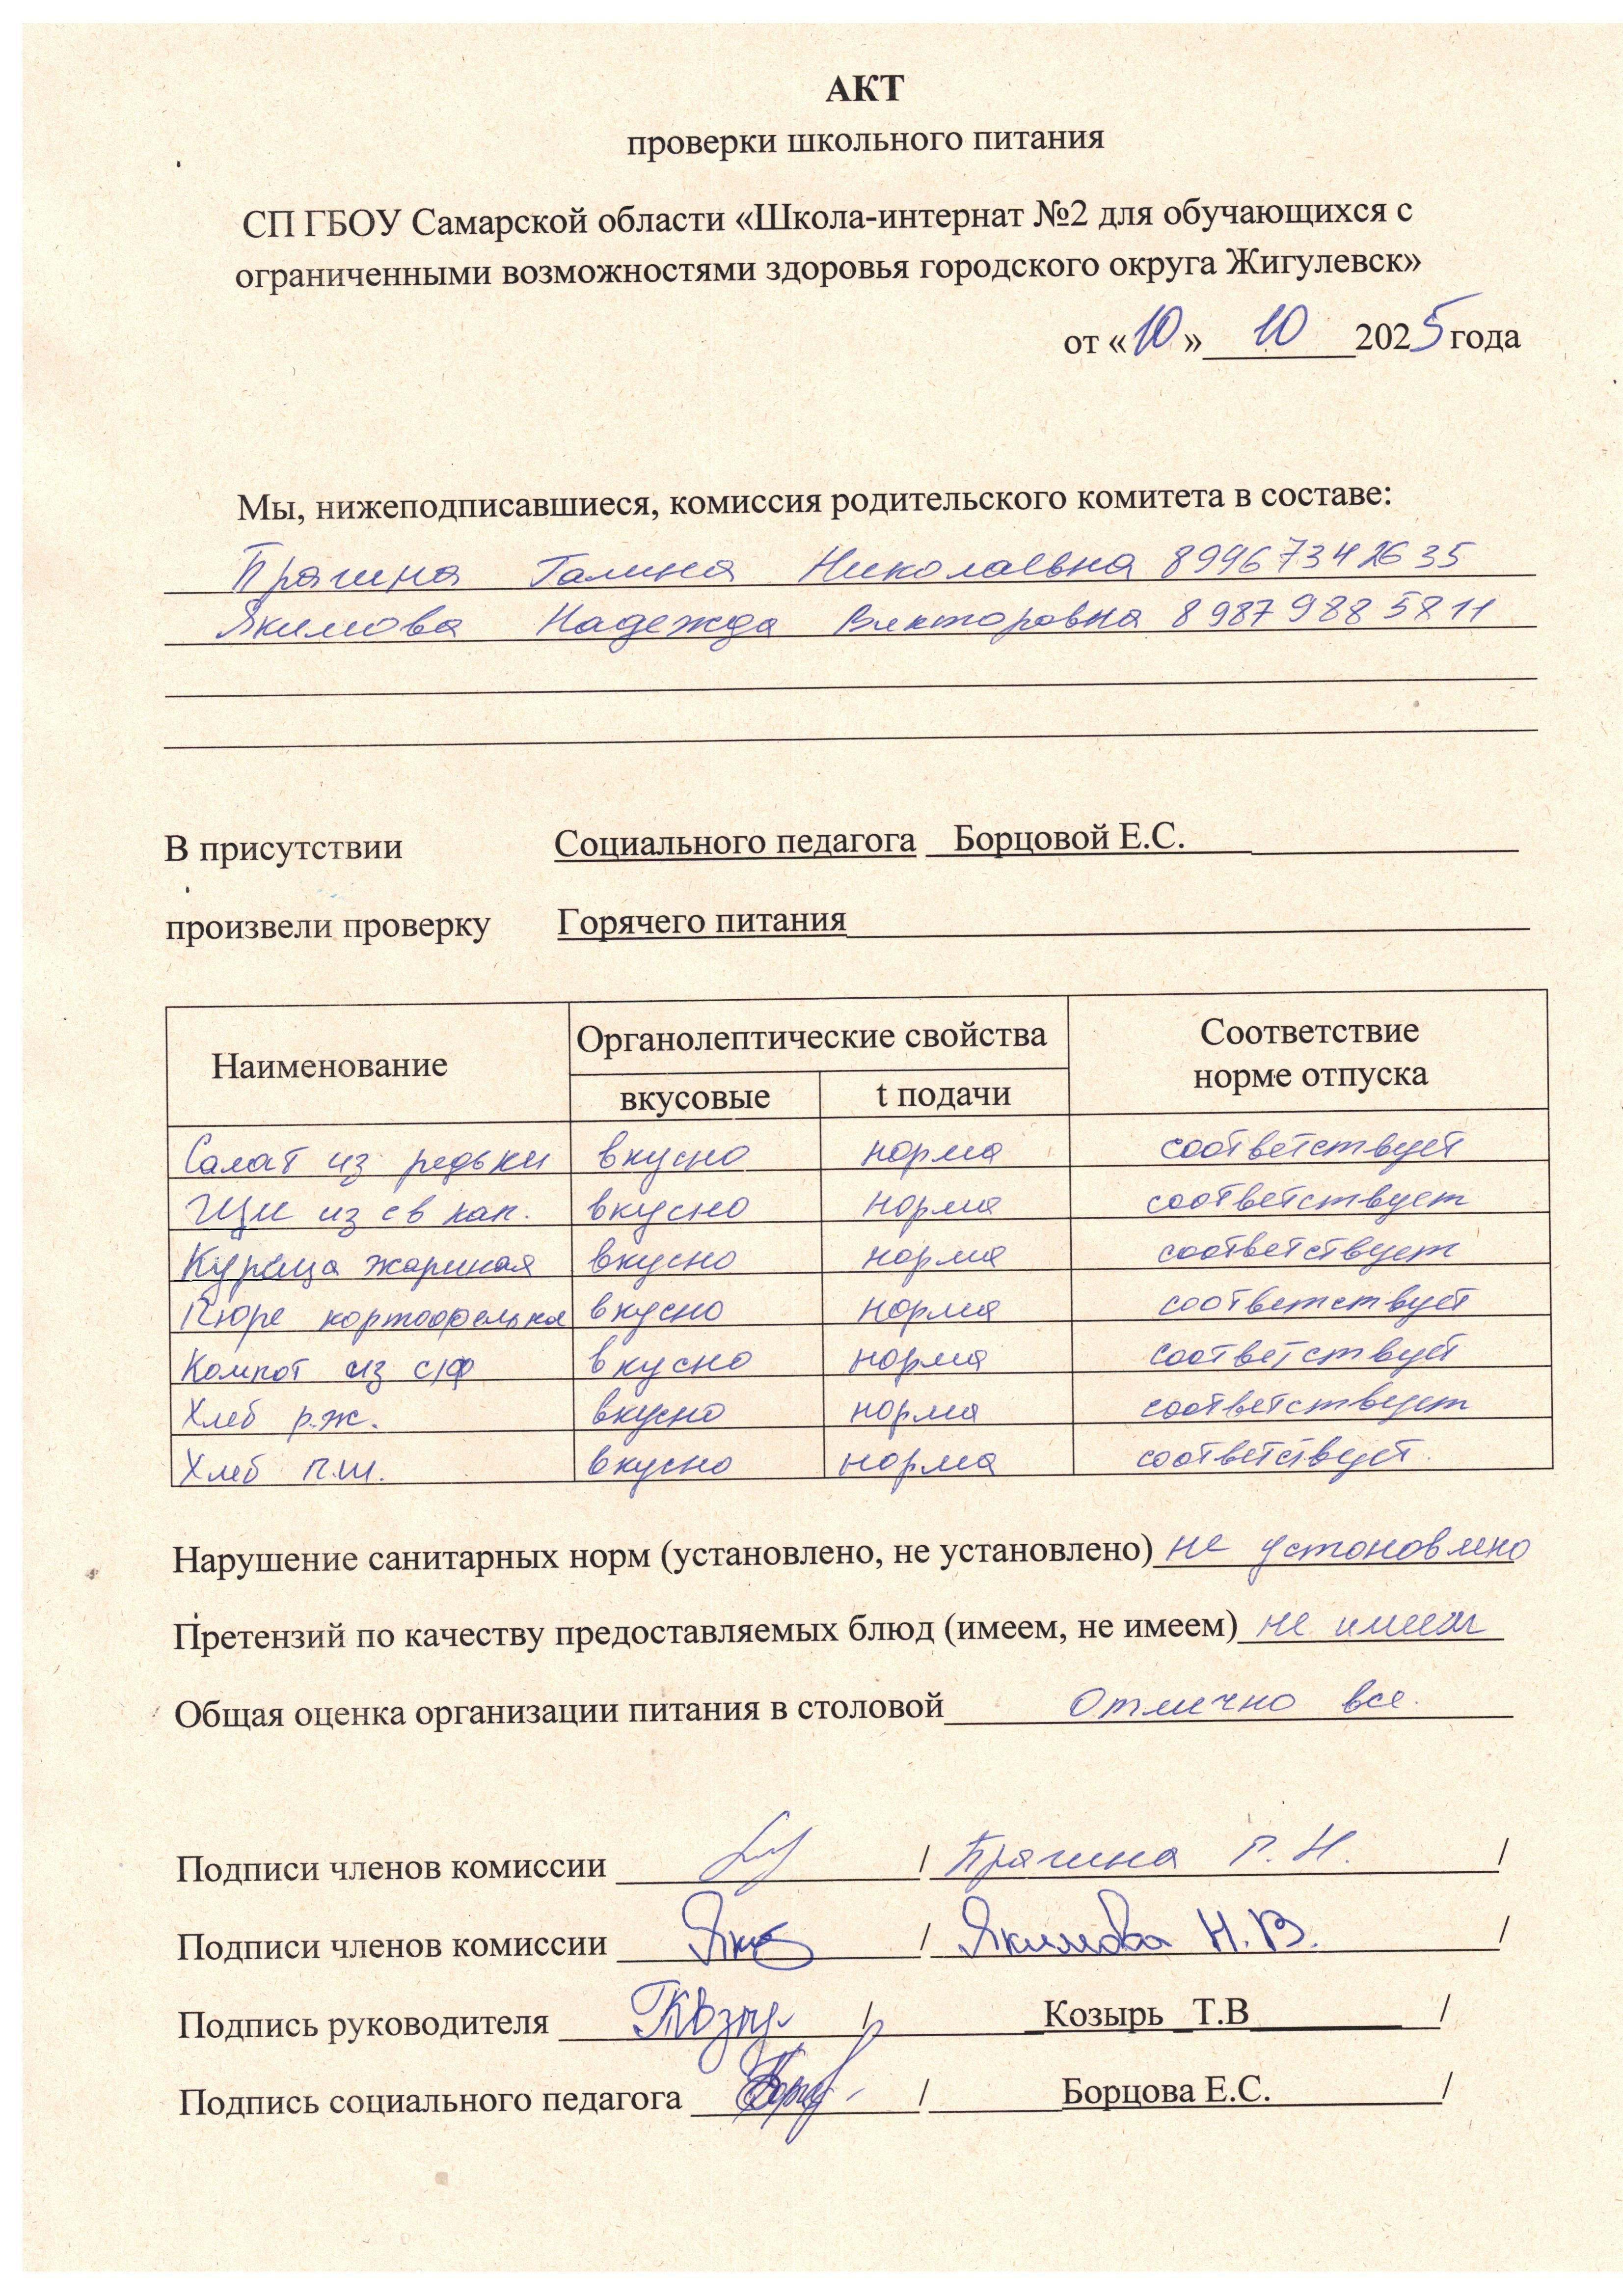 АКТ
проверки школьного питания
СП ГБОУ Самарской области «Школа-интернат №2 для обучающихся с
ограниченными возможностями здоровья городского округа Жигулевск»
от «10» 10 2025 года
Мы, нижеподписавшиеся, комиссия родительского комитета в составе:
Брагина Галина Николаевна 89967342635
Якимова Надежда Викторовна 89879885811
В присутствии Социального педагога Борцовой Е.С.
произвели проверку Горячего питания
Наименование Органолептические свойства Соответствие норме отпуска
вкусовые t подачи
Салат из редьки вкусно норма соответствует
Щи из св кап. вкусно норма соответствует
Курица жариная вкусно норма соответствует
Пюре кортофельное вкусно норма соответствует
Компот из с/ф вкусно норма соответствует
Хлеб р.ж. вкусно норма соответствует
Хлеб п.ш. вкусно норма соответствует.
Нарушение санитарных норм (установлено, не установлено) не устоновлено
Претензий по качеству предоставляемых блюд (имеем, не имеем) не имеем
Общая оценка организации питания в столовой Отлично все.
Подписи членов комиссии / Брагина Г. Н. /
Подписи членов комиссии Яки / Якимова Н.В. /
Подпись руководителя / Козырь Т.В /
Подпись социального педагога / Борцова Е.С. /